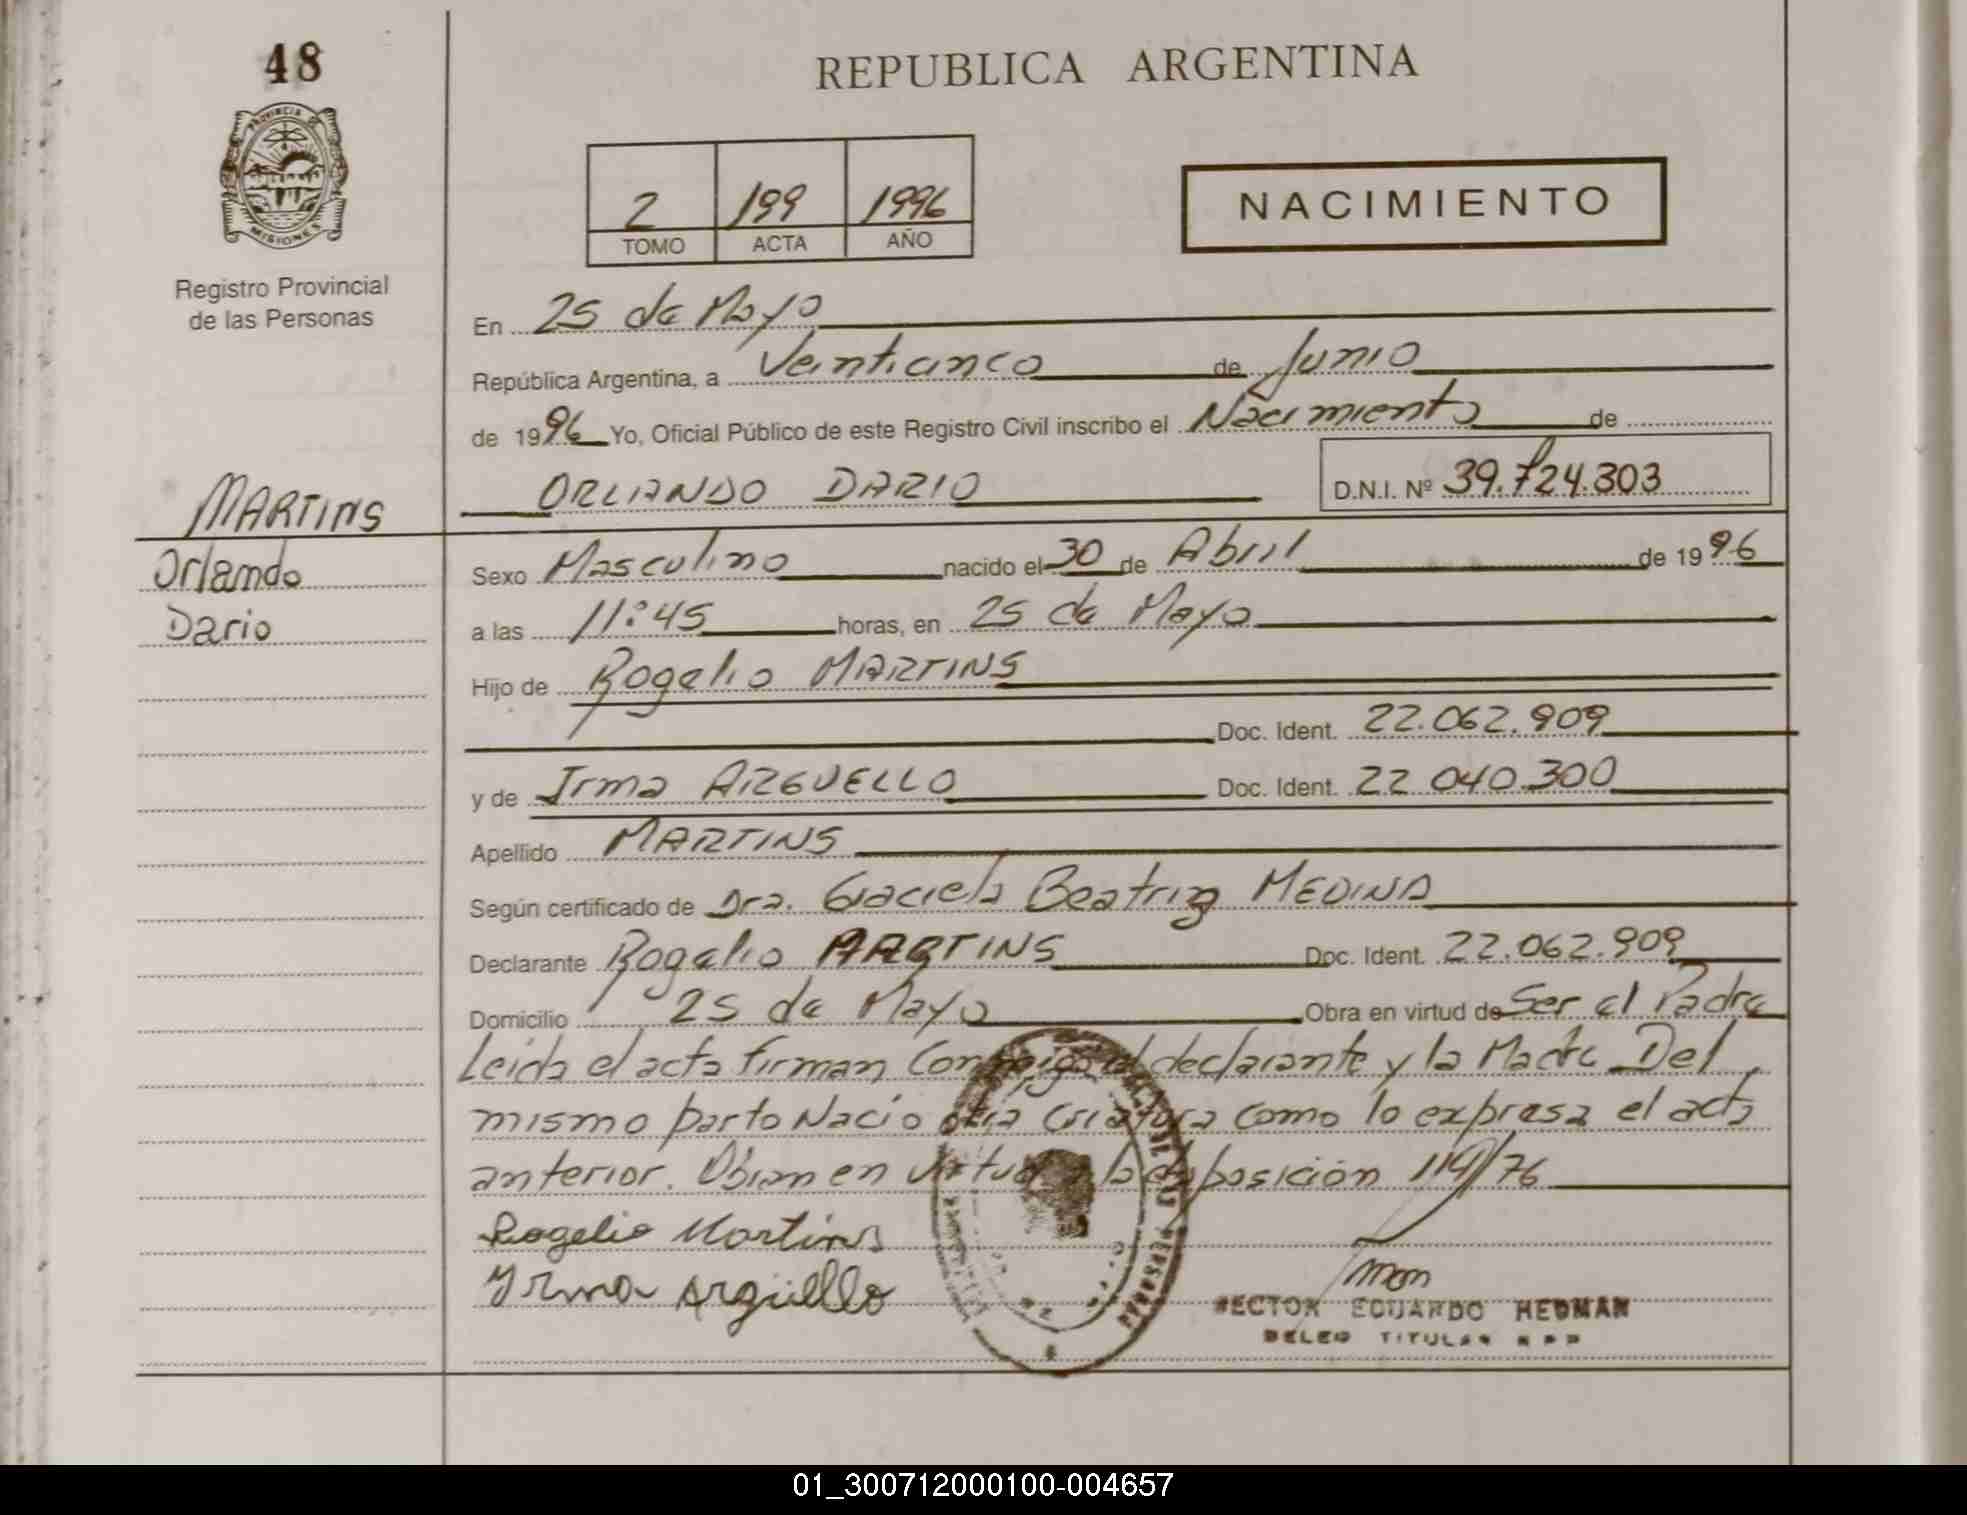 48
REPUBLICA ARGENTINA
PROVINCIA DE
MISIONES
Registro Provincial
de las Personas
2 199 1996
TOMO ACTA AÑO
NACIMIENTO
En 25 de Mayo
República Argentina, a Veinticinco de Junio
de 1996 Yo, Oficial Público de este Registro Civil inscribo el Nacimiento de
ORLANDO DARIO D.N.I. Nº 39.724.303
MARTINS
Orlando
Dario
Sexo Masculino nacido el 30 de Abril de 1996
a las 11:45 horas, en 25 de Mayo
Hijo de Rogelio MARTINS
Doc. Ident. 22.062.909
y de Irma ARGUELLO Doc. Ident. 22.040.300
Apellido MARTINS
Según certificado de Dra. Graciela Beatriz MEDINA
Declarante Rogelio MARTINS Doc. Ident. 22.062.909
Domicilio 25 de Mayo Obra en virtud de Ser el Padre
Leida el acta firman Conmigo el declarante y la Madre Del
mismo parto Nacio otra Criatura como lo expresa el acta
anterior. Obran en virtud a la disposición 119/76
Rogelio Martins
Yrma Argüello
HECTOR EDUARDO HEDMAN
DELEG TITULAR R P P
PERSONAS
01_300712000100-004657